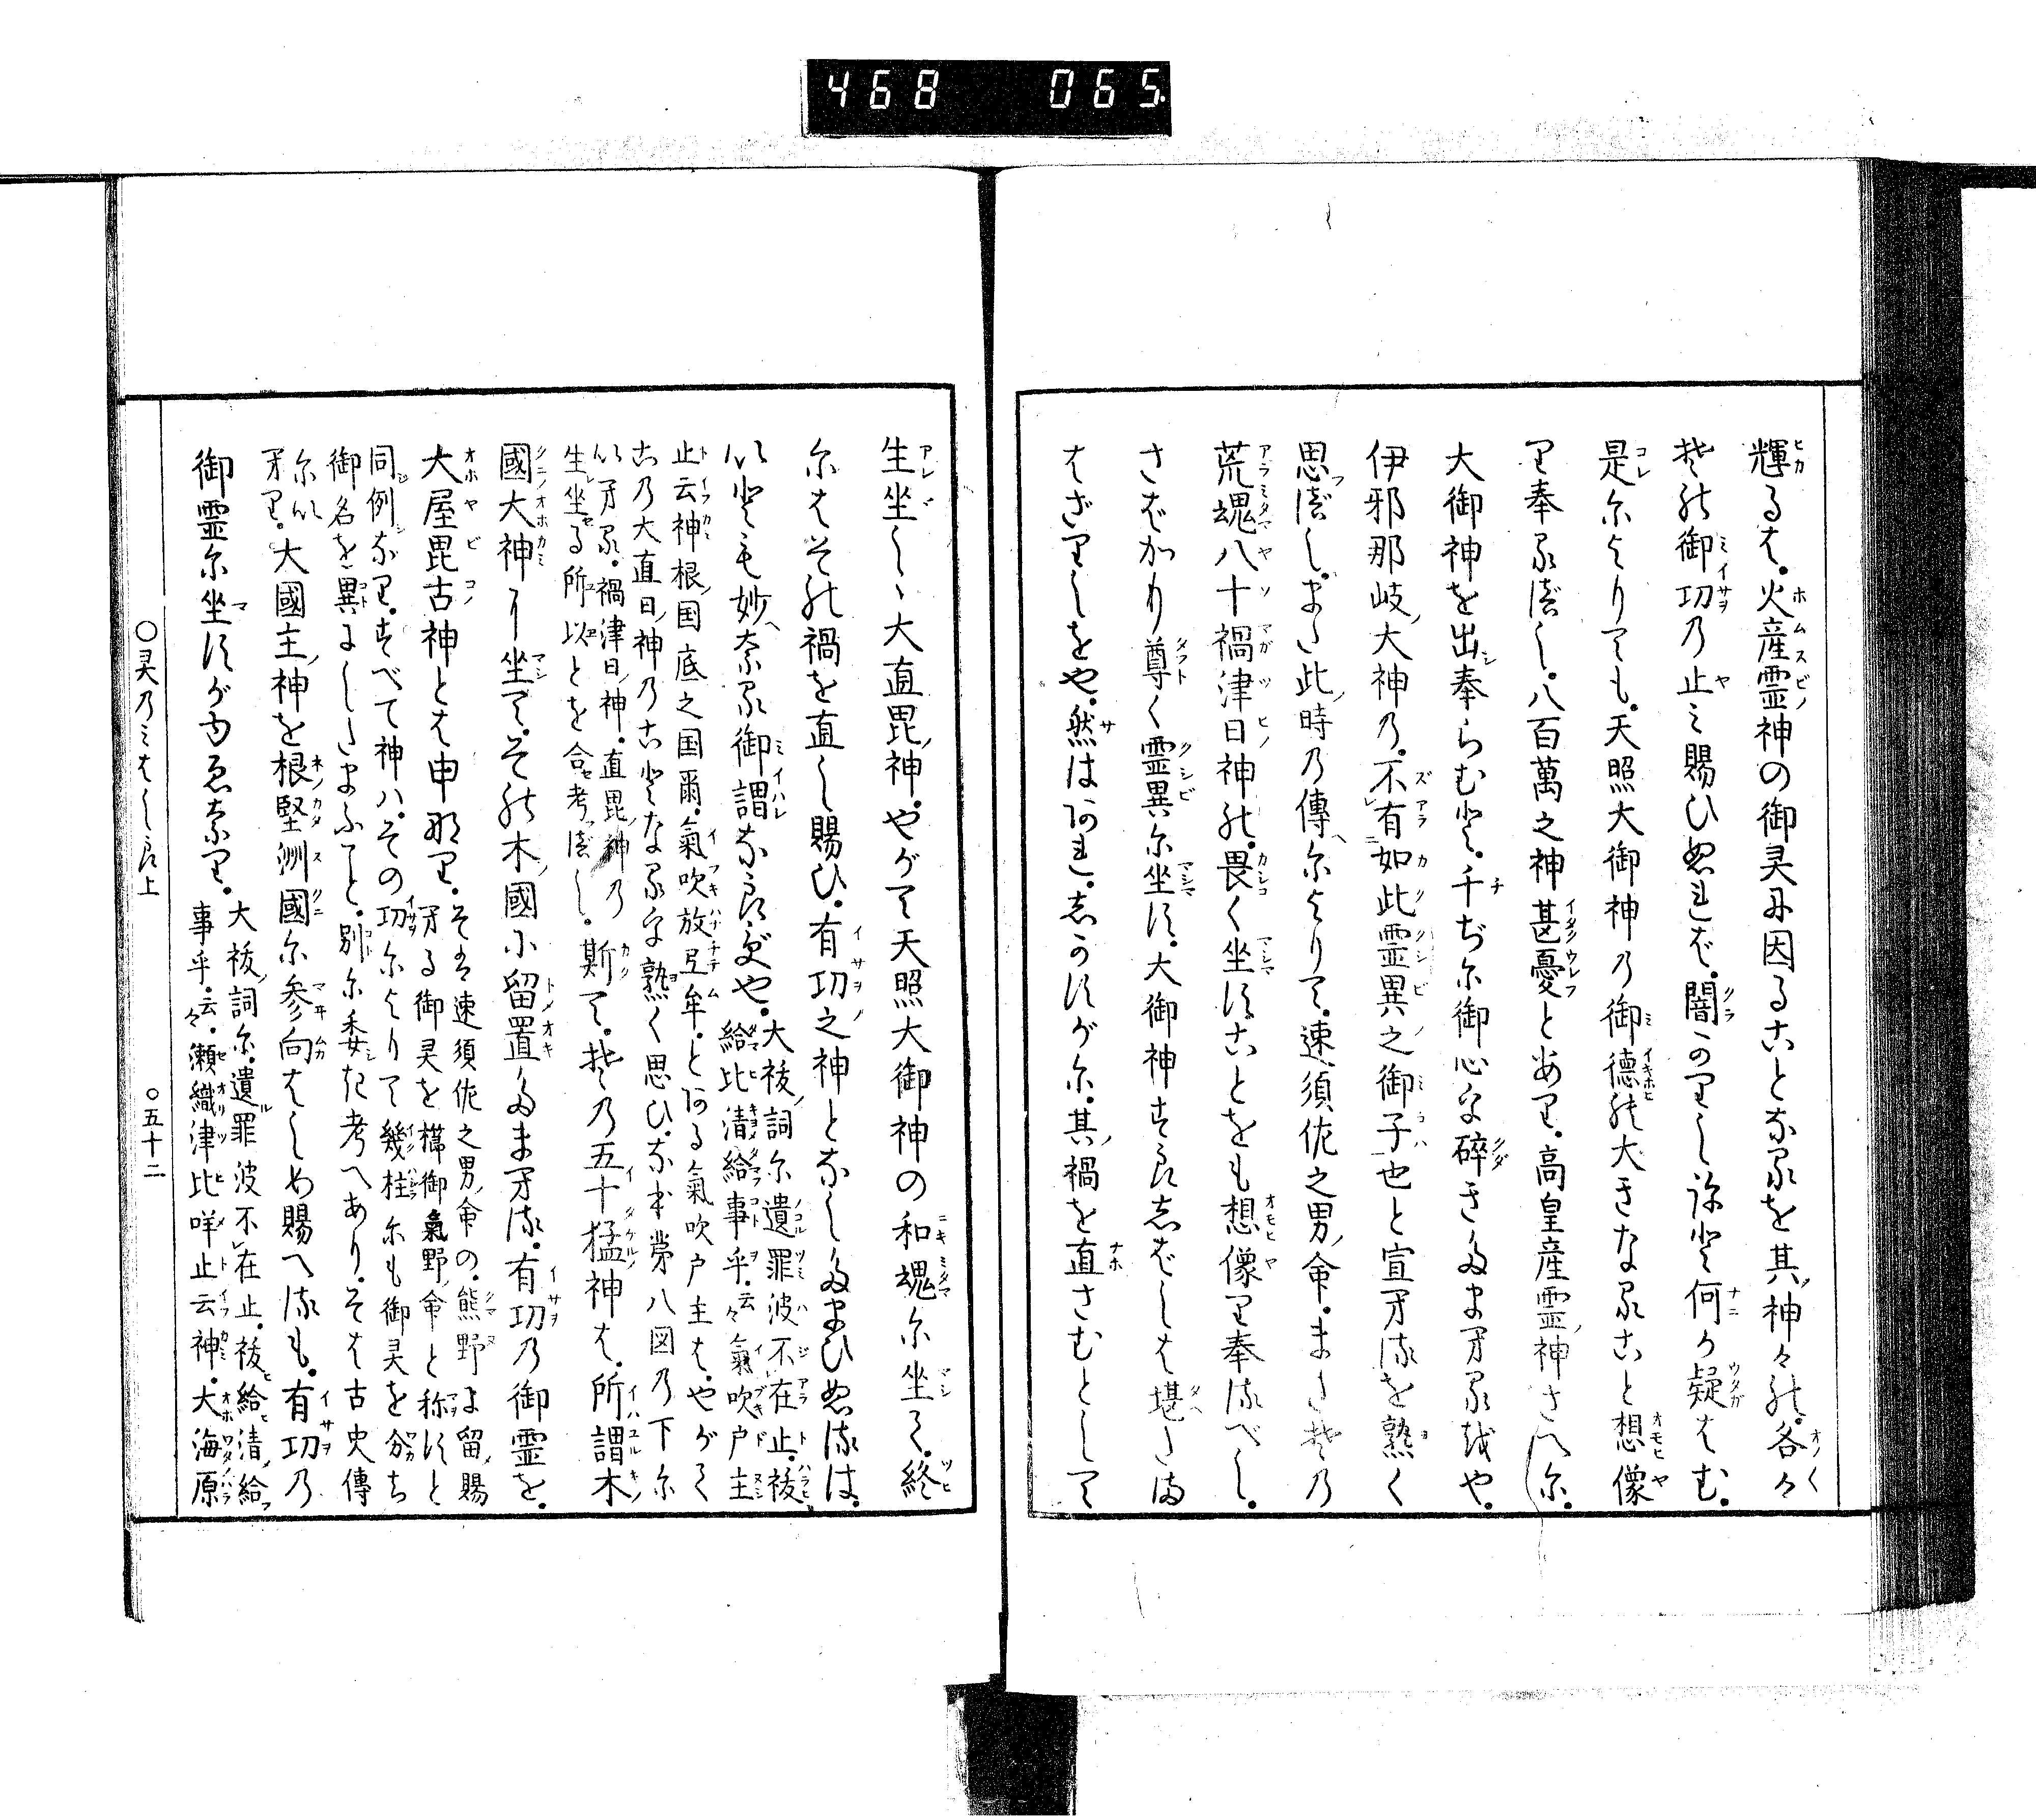 468 065
輝るは。火産霊神の御灵に因ることなるを其神々の。各々
其の御功の止み賜ひぬれば。闇かりし時何か疑はむ。
是によりても。天照大御神の御徳の大きなること想像
り奉るべし。八百萬之神甚憂とあり。高皇産霊神さへに。
大御神を出奉らむと。千ぢに御心を碎きたまへるをや。
伊邪那岐大神の。不有如此霊異之御子也と宣へるを熟く
思べし。また此時の傳によりて。速須佐之男命。また其の
荒魂八十禍津日神の。畏く坐すことをも想像り奉るべし。
さばかり尊く霊異に坐す。大御神すらしばしは堪たま
はざりしをや。然はあれ。しかすがに。其禍を直さむとして
生坐しゝ大直毘神。やがて天照大御神の和魂に坐て。終
にはその禍を直し賜ひ。有功之神となしたまひぬるは。
いとも妙なる御謂ならずや。大祓詞尓遺罪波不在止。祓
給比清給事乎。云々氣吹戸主
止云神根国底之国爾。氣吹放弖牟。とある氣吹戸主は。やがて
古の大直日神のことなるを熟く思ひ。なほ第八図の下に
いへる。禍津日神。直毘神の
生坐る所以とを合せ考べし。斯て。其の五十猛神は。所謂木
國大神に坐て。その木國に留置たまへる。有功の御霊を。
大屋毘古神とは申なり。そは速須佐之男命の。熊野に留賜
へる御灵を櫛御氣野命と称すと
同例なり。すべて神は。その功によりて幾柱にも御灵を分ち
御名を異にしたまふこと。別に委き考へあり。そは古史傳
にいへり。大國主神を根堅洲國に参向はしめ賜へるも。有功の
御霊に坐すがゆゑなり。大祓詞尓。遺罪波不在止。祓給清給
事乎。云々。瀬織津比咩止云神。大海原
○灵乃みはしら上 ○五十二